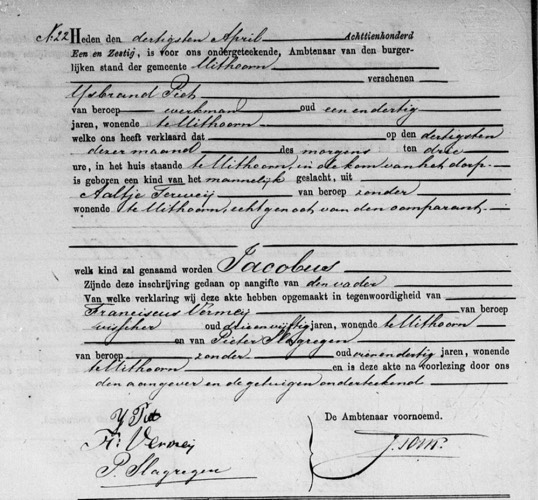 N. 22 Heden den dertigsten April Achttienhonderd
Een en Zestig, is voor ons ondergeteekende, Ambtenaar van den burger-
lijken stand der gemeente Uithoorn
verschenen
IJsbrand Piet
van beroep werkman oud een en dertig
jaren, wonende te Uithoorn
welke ons heeft verklaard dat op den dertigsten
dezer maand des morgens ten drie
ure, in het huis staande te Uithoorn, in de kom van het dorp
is geboren een kind van het mannelijk geslacht, uit
Aaltje Terweij van beroep zonder
wonende te Uithoorn, echtgenoot van den comparant
welk kind zal genaamd worden Jacobus
Zijnde deze inschrijving gedaan op aangifte van den vader
Van welke verklaring wij deze akte hebben opgemaakt in tegenwoordigheid van
Franciscus Vermeij van beroep
visscher oud drie en vijftig jaren, wonende te Uithoorn
en van Pieter Slagregen
van beroep zonder oud vier en dertig jaren, wonende
te Uithoorn en is deze akte na voorlezing door ons
den aangever en de getuigen onderteekend
De Ambtenaar voornoemd.
Y Piet
Fr: Vermeij
P. Slagregen